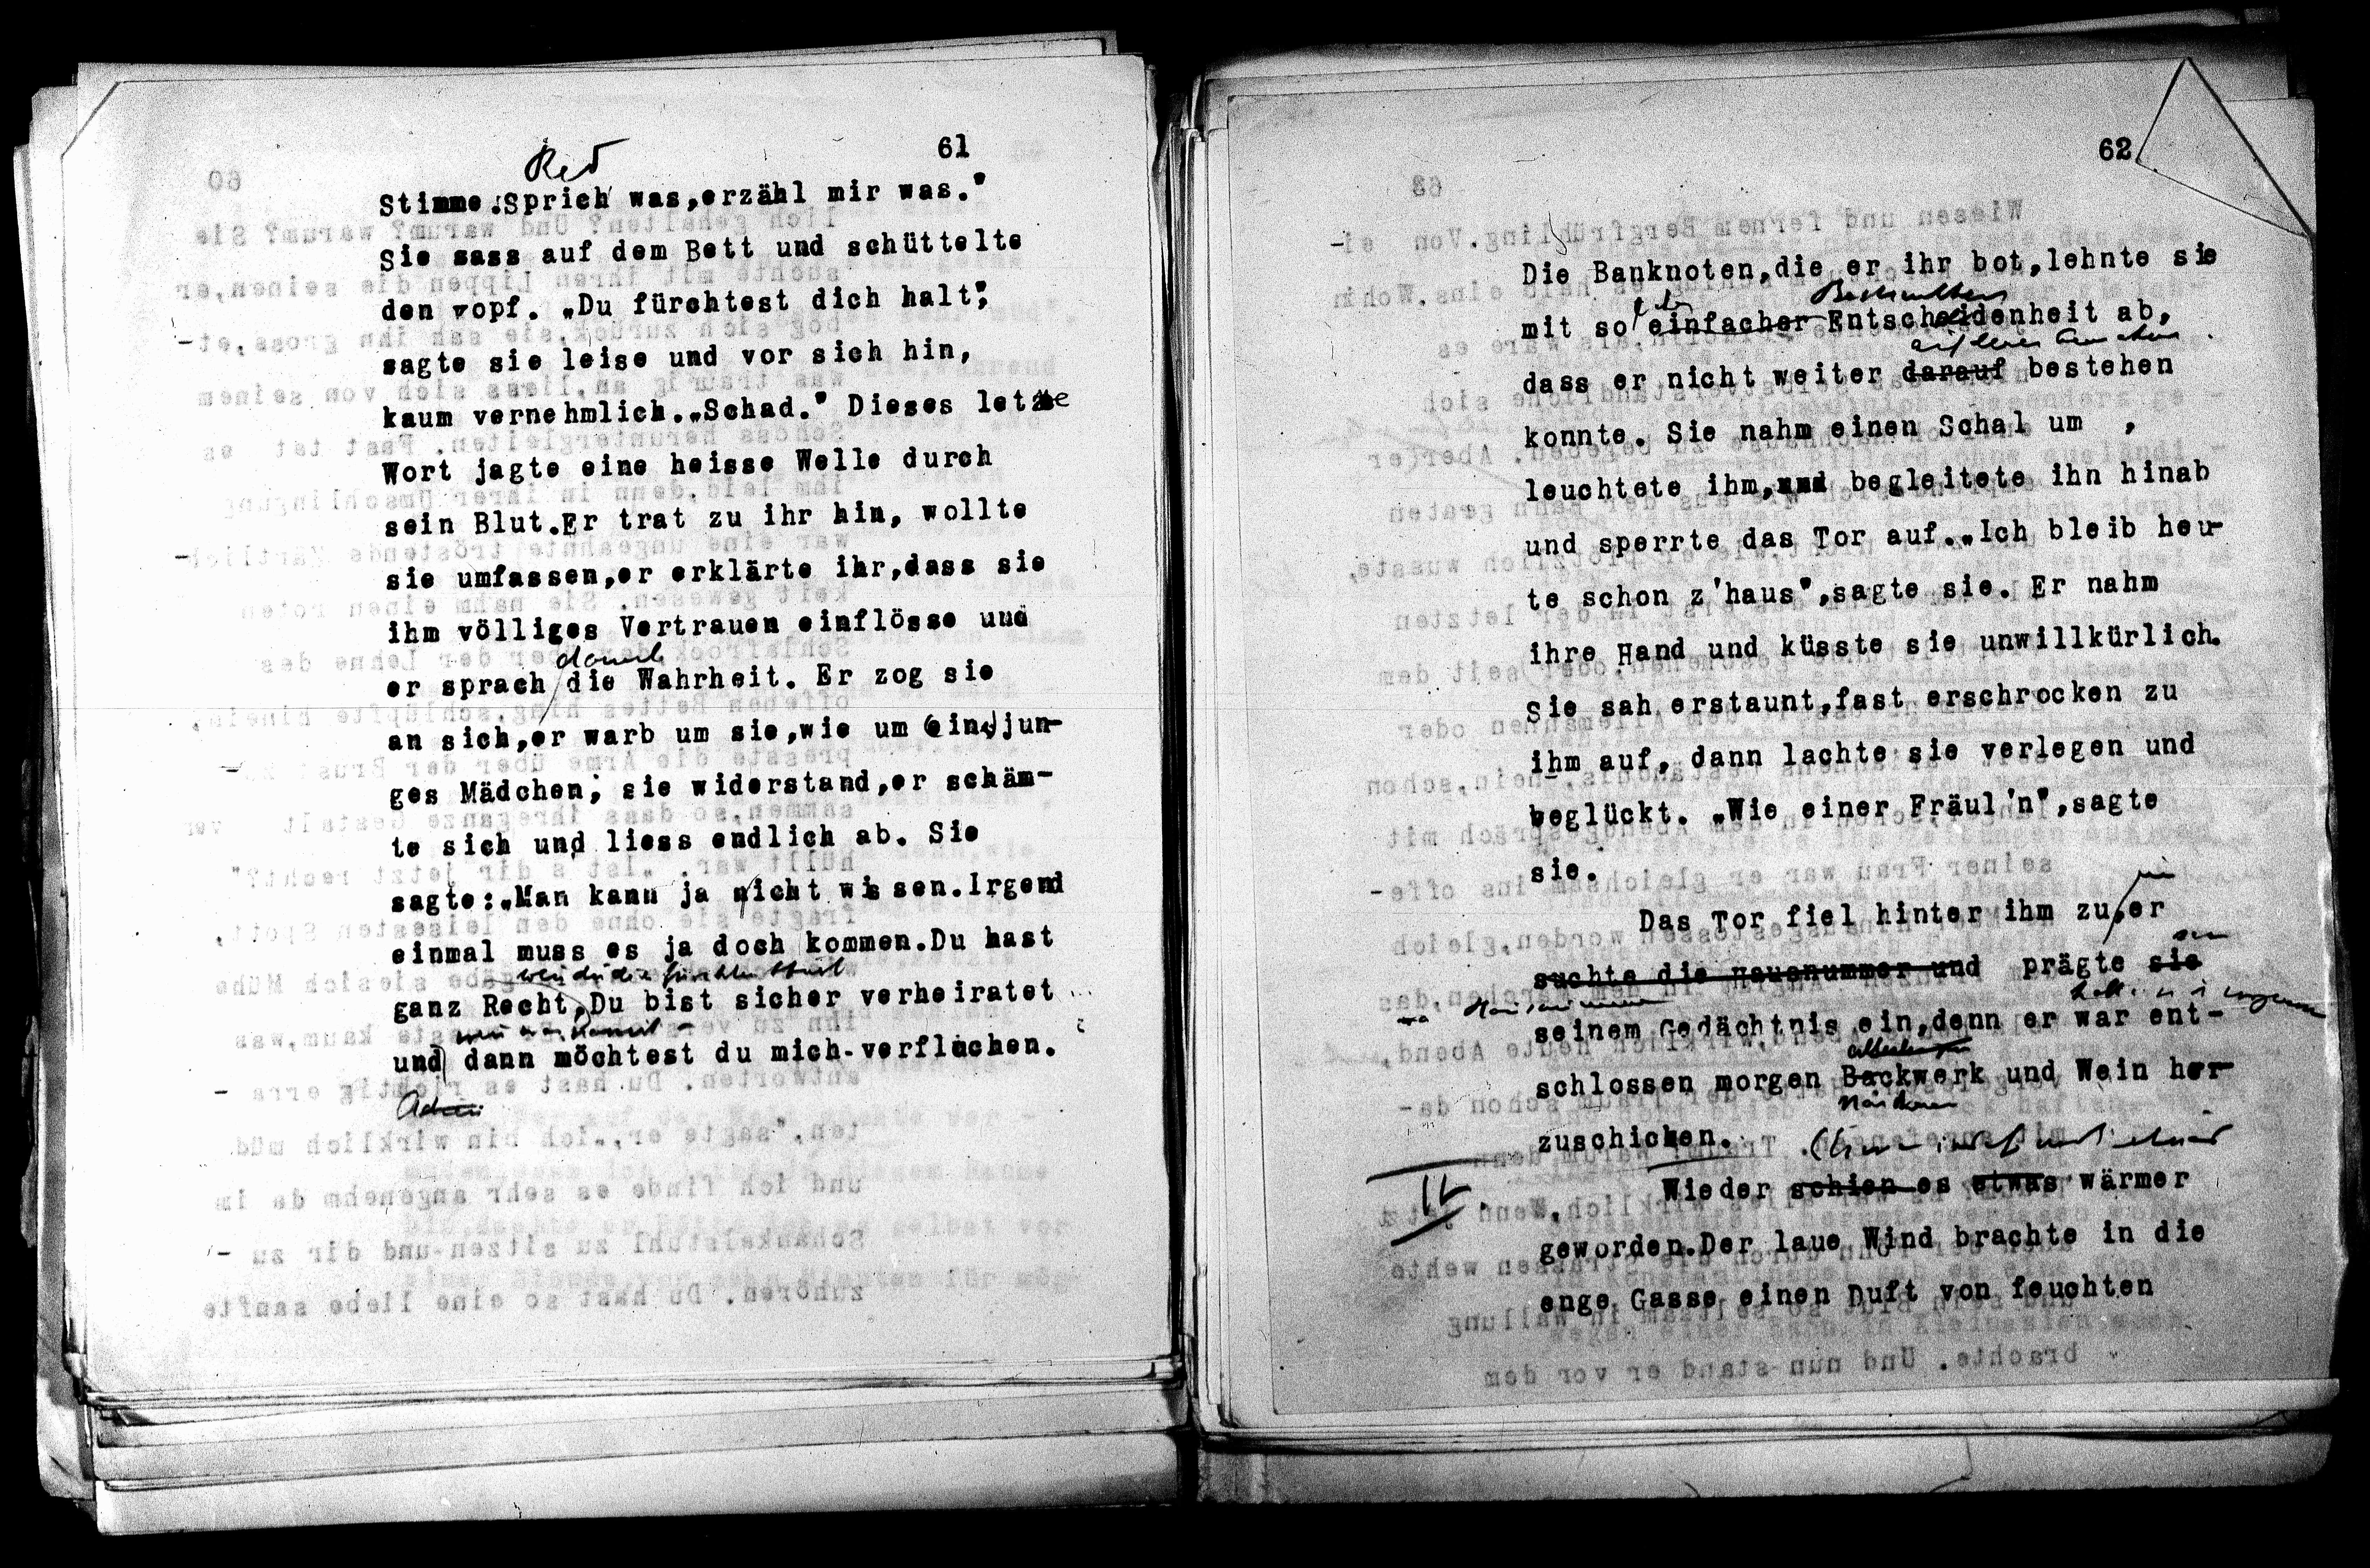 61
Red
Stimme.Sprich was,erzähl mir was."
Sie sass auf dem Bett und schüttelte
den Kopf. „Du fürchtest dich halt",
sagte sie leise und vor sich hin,
kaum vernehmlich.„Schad." Dieses letzte
Wort jagte eine heisse Welle durch
sein Blut.Er trat zu ihr hin, wollte
sie umfassen,er erklärte ihr,dass sie
ihm völliges Vertrauen einflösse und
damit
er sprach die Wahrheit. Er zog sie
an sich,er warb um sie,wie um ein jun-
ges Mädchen; sie widerstand,er schäm-
te sich und liess endlich ab. Sie
sagte:„Man kann ja nicht wissen.Irgend
einmal muss es ja doch kommen.Du hast
ganz Recht,Du bist sicher verheiratet
und dann möchtest du mich verfluchen.
62
Die Banknoten,die er ihr bot,lehnte sie
mit so einfacher Entscheidenheit ab,
dass er nicht weiter darauf bestehen
konnte. Sie nahm einen Schal um ,
leuchtete ihm,und begleitete ihn hinab
und sperrte das Tor auf.„Ich bleib heu-
te schon z'haus",sagte sie. Er nahm
ihre Hand und küsste sie unwillkürlich.
Sie sah erstaunt,fast erschrocken zu
ihm auf, dann lachte sie verlegen und
beglückt. „Wie einer Fräul'n",sagte
sie.
Das Tor fiel hinter ihm zu,er
suchte die Hausnummer und prägte sie
Hausnummer
seinem Gedächtnis ein,denn er war ent-
schlossen morgen Backwerk und Wein her-
zuschicken.
IV.
Wieder schien es etwas wärmer
geworden.Der laue Wind brachte in die
enge Gasse einen Duft von feuchten